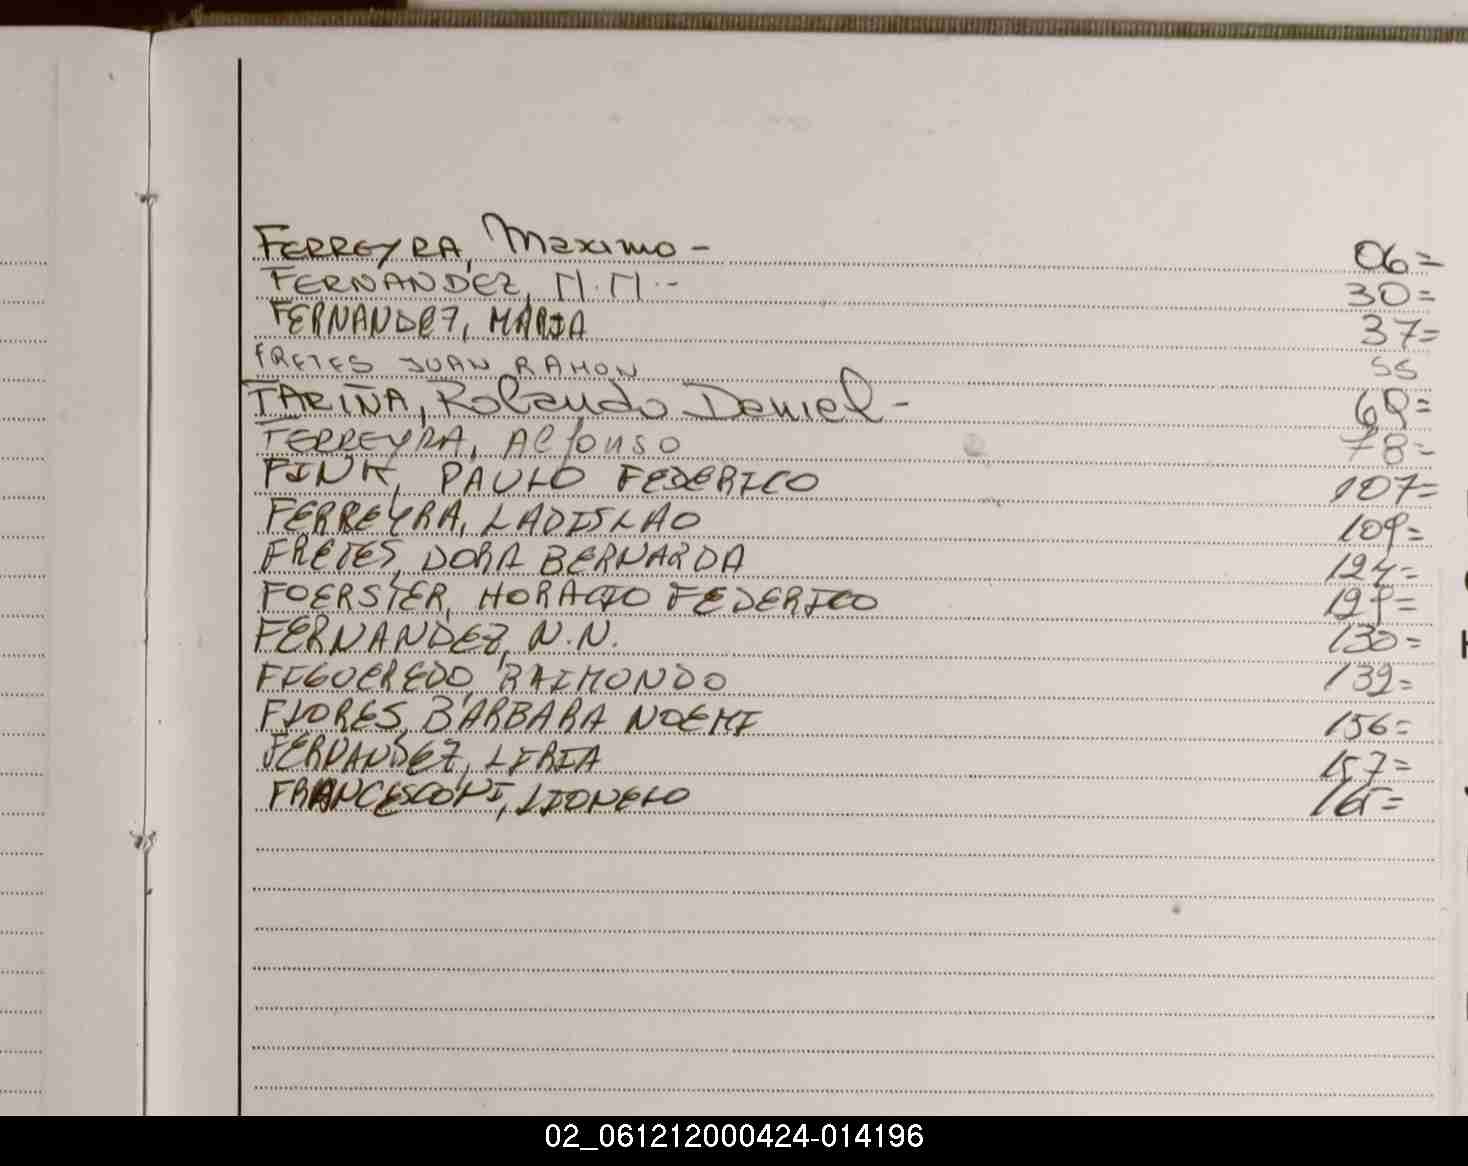 FERREYRA, Maximo - 06=
FERNANDEZ, N.N.- 30=
FERNANDEZ, MARIA 37=
FRETES JUAN RAMON 55
FARIÑA, Rolando Daniel - 69=
FERREYRA, Alfonso 78=
FINK, PAULO FEDERICO 107=
FERREYRA, LADISLAO 109=
FRETES, DORA BERNARDA 124=
FOERSTER, HORACIO FEDERICO 129=
FERNANDEZ, N.N. 130=
FIGUEREDO, RAIMONDO 139=
FLORES, BARBARA NOEMI 156=
FERNANDEZ, LIRIA 157=
FRANCESCONI, LIONELO 165=
02_061212000424-014196